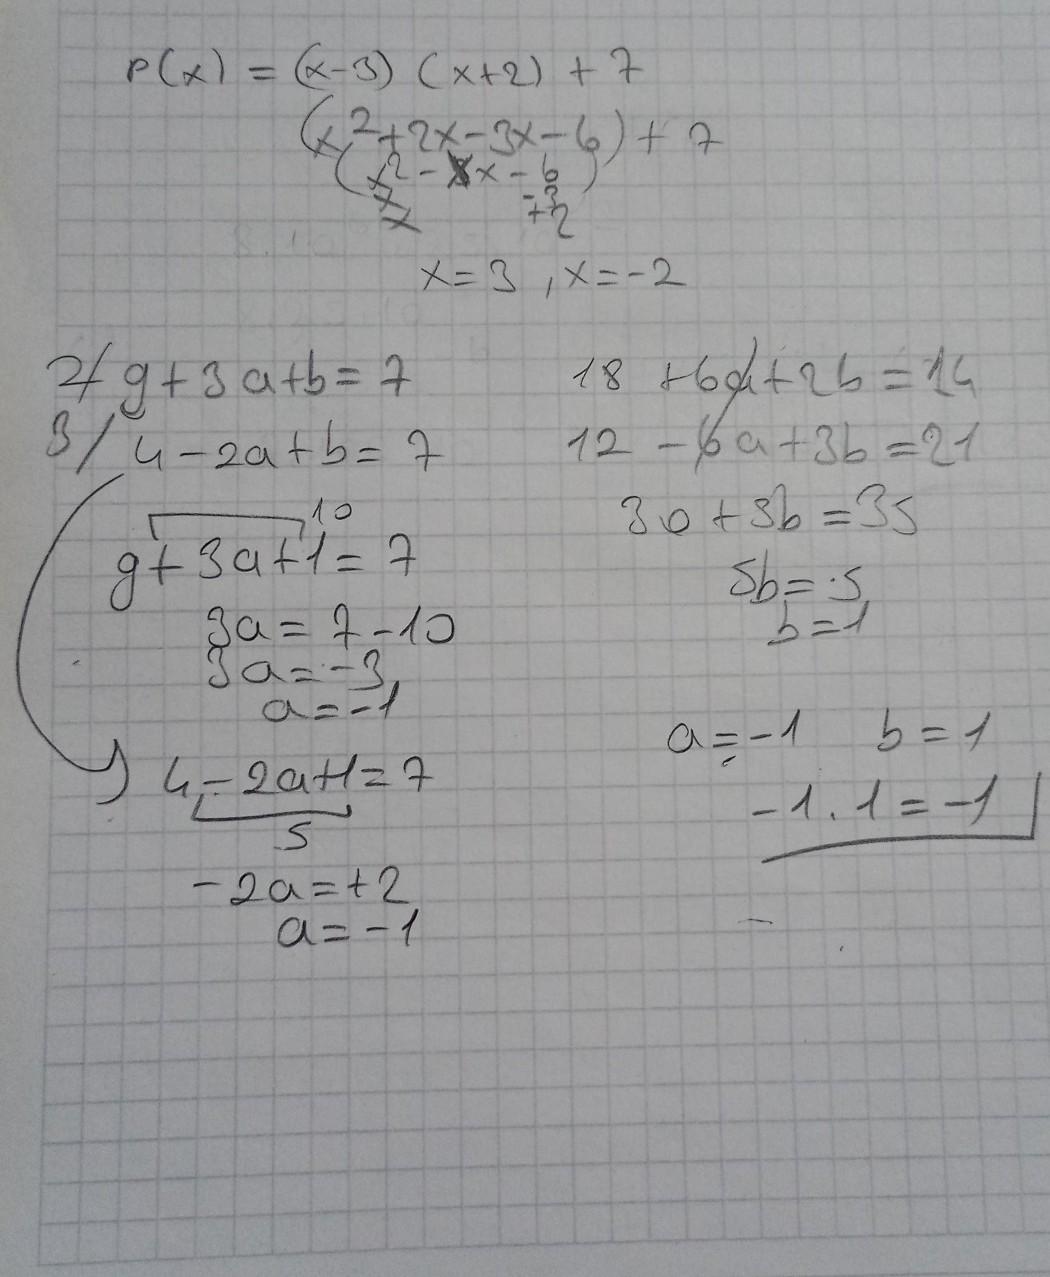 P(x) = (x-3) (x+2) + 7
(x²+2x-3x-6) + 7
(x² - x - 6)
x -3
x +2
x=3 , x=-2
2/ 9+3a+b=7
3/ 4-2a+b=7
10
9+3a+1=7
3a=7-10
3a=-3
a=-1
4-2a+1=7
5
-2a=+2
a=-1
18 +6a+2b=14
12 -6a+3b=21
30+5b=35
5b=5
b=1
a=-1 b=1
-1.1=-1